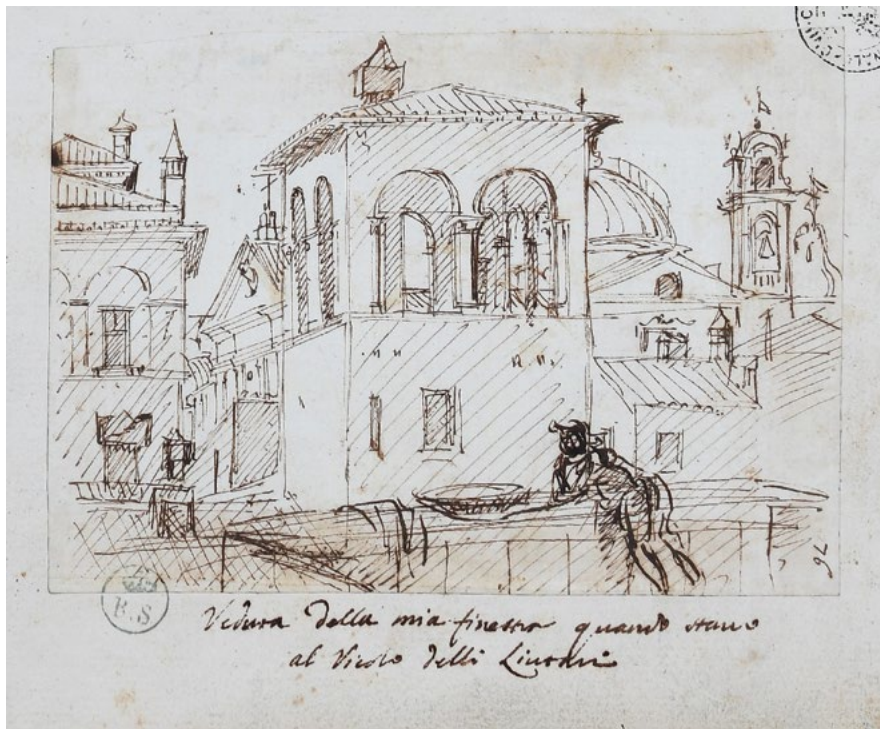 Veduta della mia finestra quando stavo
al Vicolo delli Liutari
76
B.S